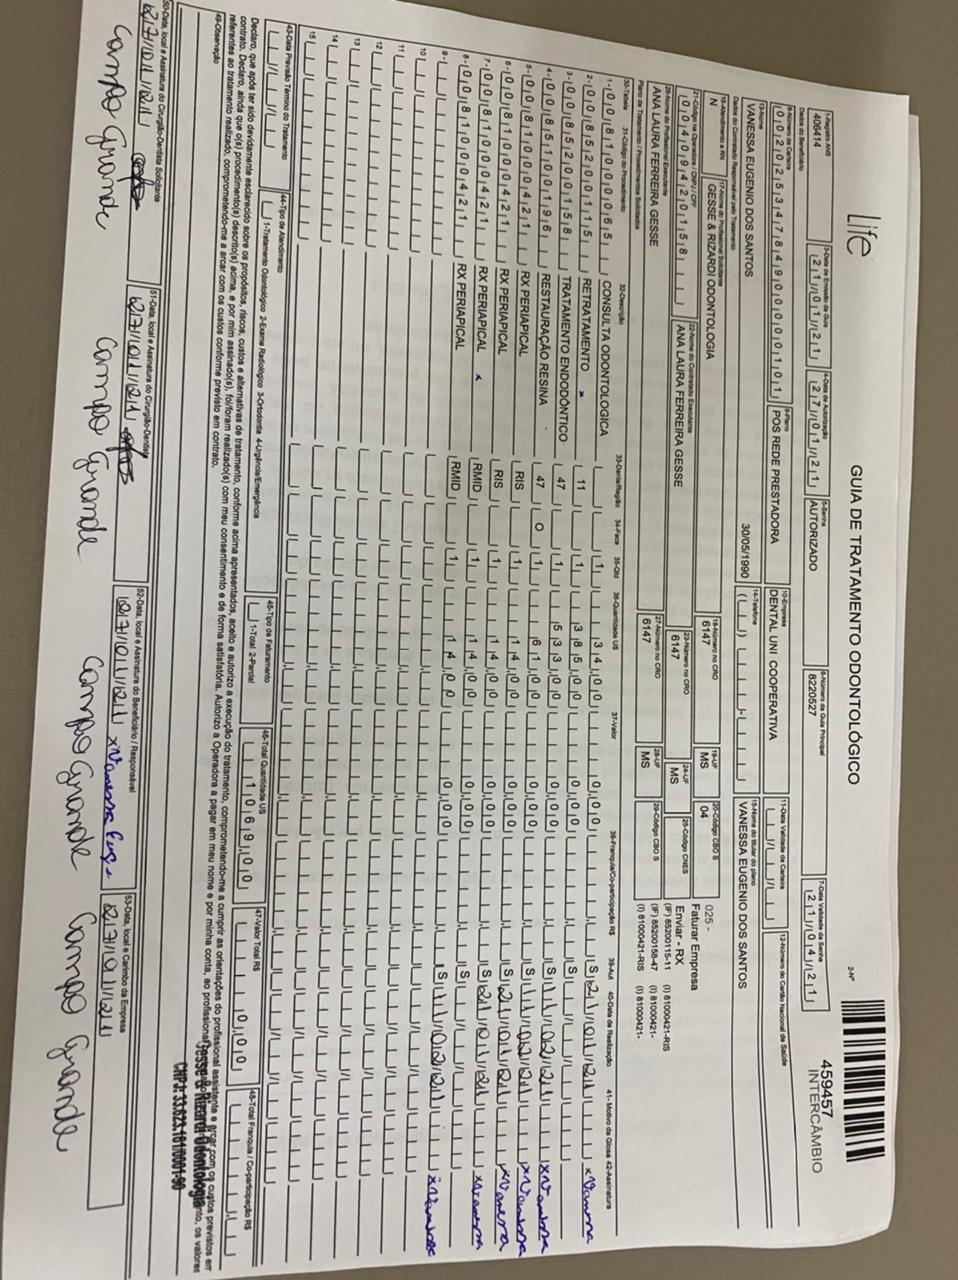 Life
GUIA DE TRATAMENTO ODONTOLÓGICO
2-Nº
459457
INTERCÂMBIO
1-Registro ANS
406414
3-Data de Emissão da Guia
21/01/21
4-Data de Autorização
27/01/21
5-Senha
AUTORIZADO
6-Número da Guia Principal
8220527
7-Data Validade da Senha
21/04/21
Dados do Beneficiário
8-Número da Carteira
00202534784900000101
9-Plano
POS REDE PRESTADORA
10-Empresa
DENTAL UNI COOPERATIVA
11-Data Validade da Carteira
12-Número do Cartão Nacional de Saúde
13-Nome
VANESSA EUGENIO DOS SANTOS
30/05/1990
14-Telefone
15-Nome do titular do plano
VANESSA EUGENIO DOS SANTOS
Dados do Contratado Responsável pelo Tratamento
16-Atendimento a RN
N
17-Nome do Profissional Solicitante
GESSE & RIZARDI ODONTOLOGIA
18-Número no CRO
6147
19-UF
MS
20-Código CBO S
04
025 -
Faturar Empresa
Enviar - RX
21-Código na Operadora / CNPJ / CPF
00409420158
22-Nome do Contratado Executante
ANA LAURA FERREIRA GESSE
23-Número no CRO
6147
24-UF
MS
25-Código CNES
26-Nome do Profissional Executante
ANA LAURA FERREIRA GESSE
27-Número no CRO
6147
28-UF
MS
29-Código CBO S
(IF) 85200115-11 (I) 81000421-RIS
(IF) 85200158-47 (I) 81000421-
(I) 81000421-RIS (I) 81000421-
Plano de Tratamento / Procedimentos Solicitados
30-Tabela 31-Código do Procedimento 32-Descrição 33-Dente/Região 34-Face 35-Qtd 36-Quantidade US 37-Valor 38-Franquia/Co-participação R$ 39-Aut 40-Data de Realização 41-Motivo da Glosa 42-Assinatura
1- 00 81000065 CONSULTA ODONTOLOGICA 1 34,00 0,00 S
2- 00 85200115 RETRATAMENTO 11 1 385,00 0,00 S
3- 00 85200158 TRATAMENTO ENDODÔNTICO 47 1 533,00 0,00 S
4- 00 85100196 RESTAURAÇÃO RESINA 47 O 1 61,00 0,00 S
5- 00 81000421 RX PERIAPICAL RIS 1 14,00 0,00 S
6- 00 81000421 RX PERIAPICAL RIS 1 14,00 0,00 S
7- 00 81000421 RX PERIAPICAL RMID 1 14,00 0,00 S
8- 00 81000421 RX PERIAPICAL RMID 1 14,00 0,00 S
9-
10
11
12
13
14
15
43-Data Previsão Término do Tratamento
44-Tipo de Atendimento
1-Tratamento Odontológico 2-Exame Radiológico 3-Ortodontia 4-Urgência/Emergência
45-Tipo de Faturamento
1-Total 2-Parcial
46-Total Quantidade US
1069,00
47-Valor Total R$
0,00
48-Total Franquia / Co-participação R$
Declaro, que após ter sido devidamente esclarecido sobre os propósitos, riscos, custos e alternativas de tratamento, conforme acima apresentados, aceito e autorizo a execução do tratamento, comprometendo-me a cumprir as orientações do profissional assistente e arcar com os custos previstos em
contrato. Declaro, ainda que o(s) procedimento(s) descrito(s) acima, e por mim assinado(s), foi/foram realizado(s) com meu consentimento e de forma satisfatória. Autorizo a Operadora a pagar em meu nome e por minha conta, ao profissional
referentes ao tratamento realizado, comprometendo-me a arcar com os custos conforme previsto em contrato.
49-Observação
Gesse & Rizardi Odontologia
CNPJ: 33.623.161/0001-90
50-Data, local e Assinatura do Cirurgião-Dentista Solicitante
27/01/21
Campo Grande
51-Data, local e Assinatura do Cirurgião-Dentista
27/01/21
Campo Grande
52-Data, local e Assinatura do Beneficiário / Responsável
27/01/21
Campo Grande
53-Data, local e Carimbo da Empresa
27/01/21
Campo Grande